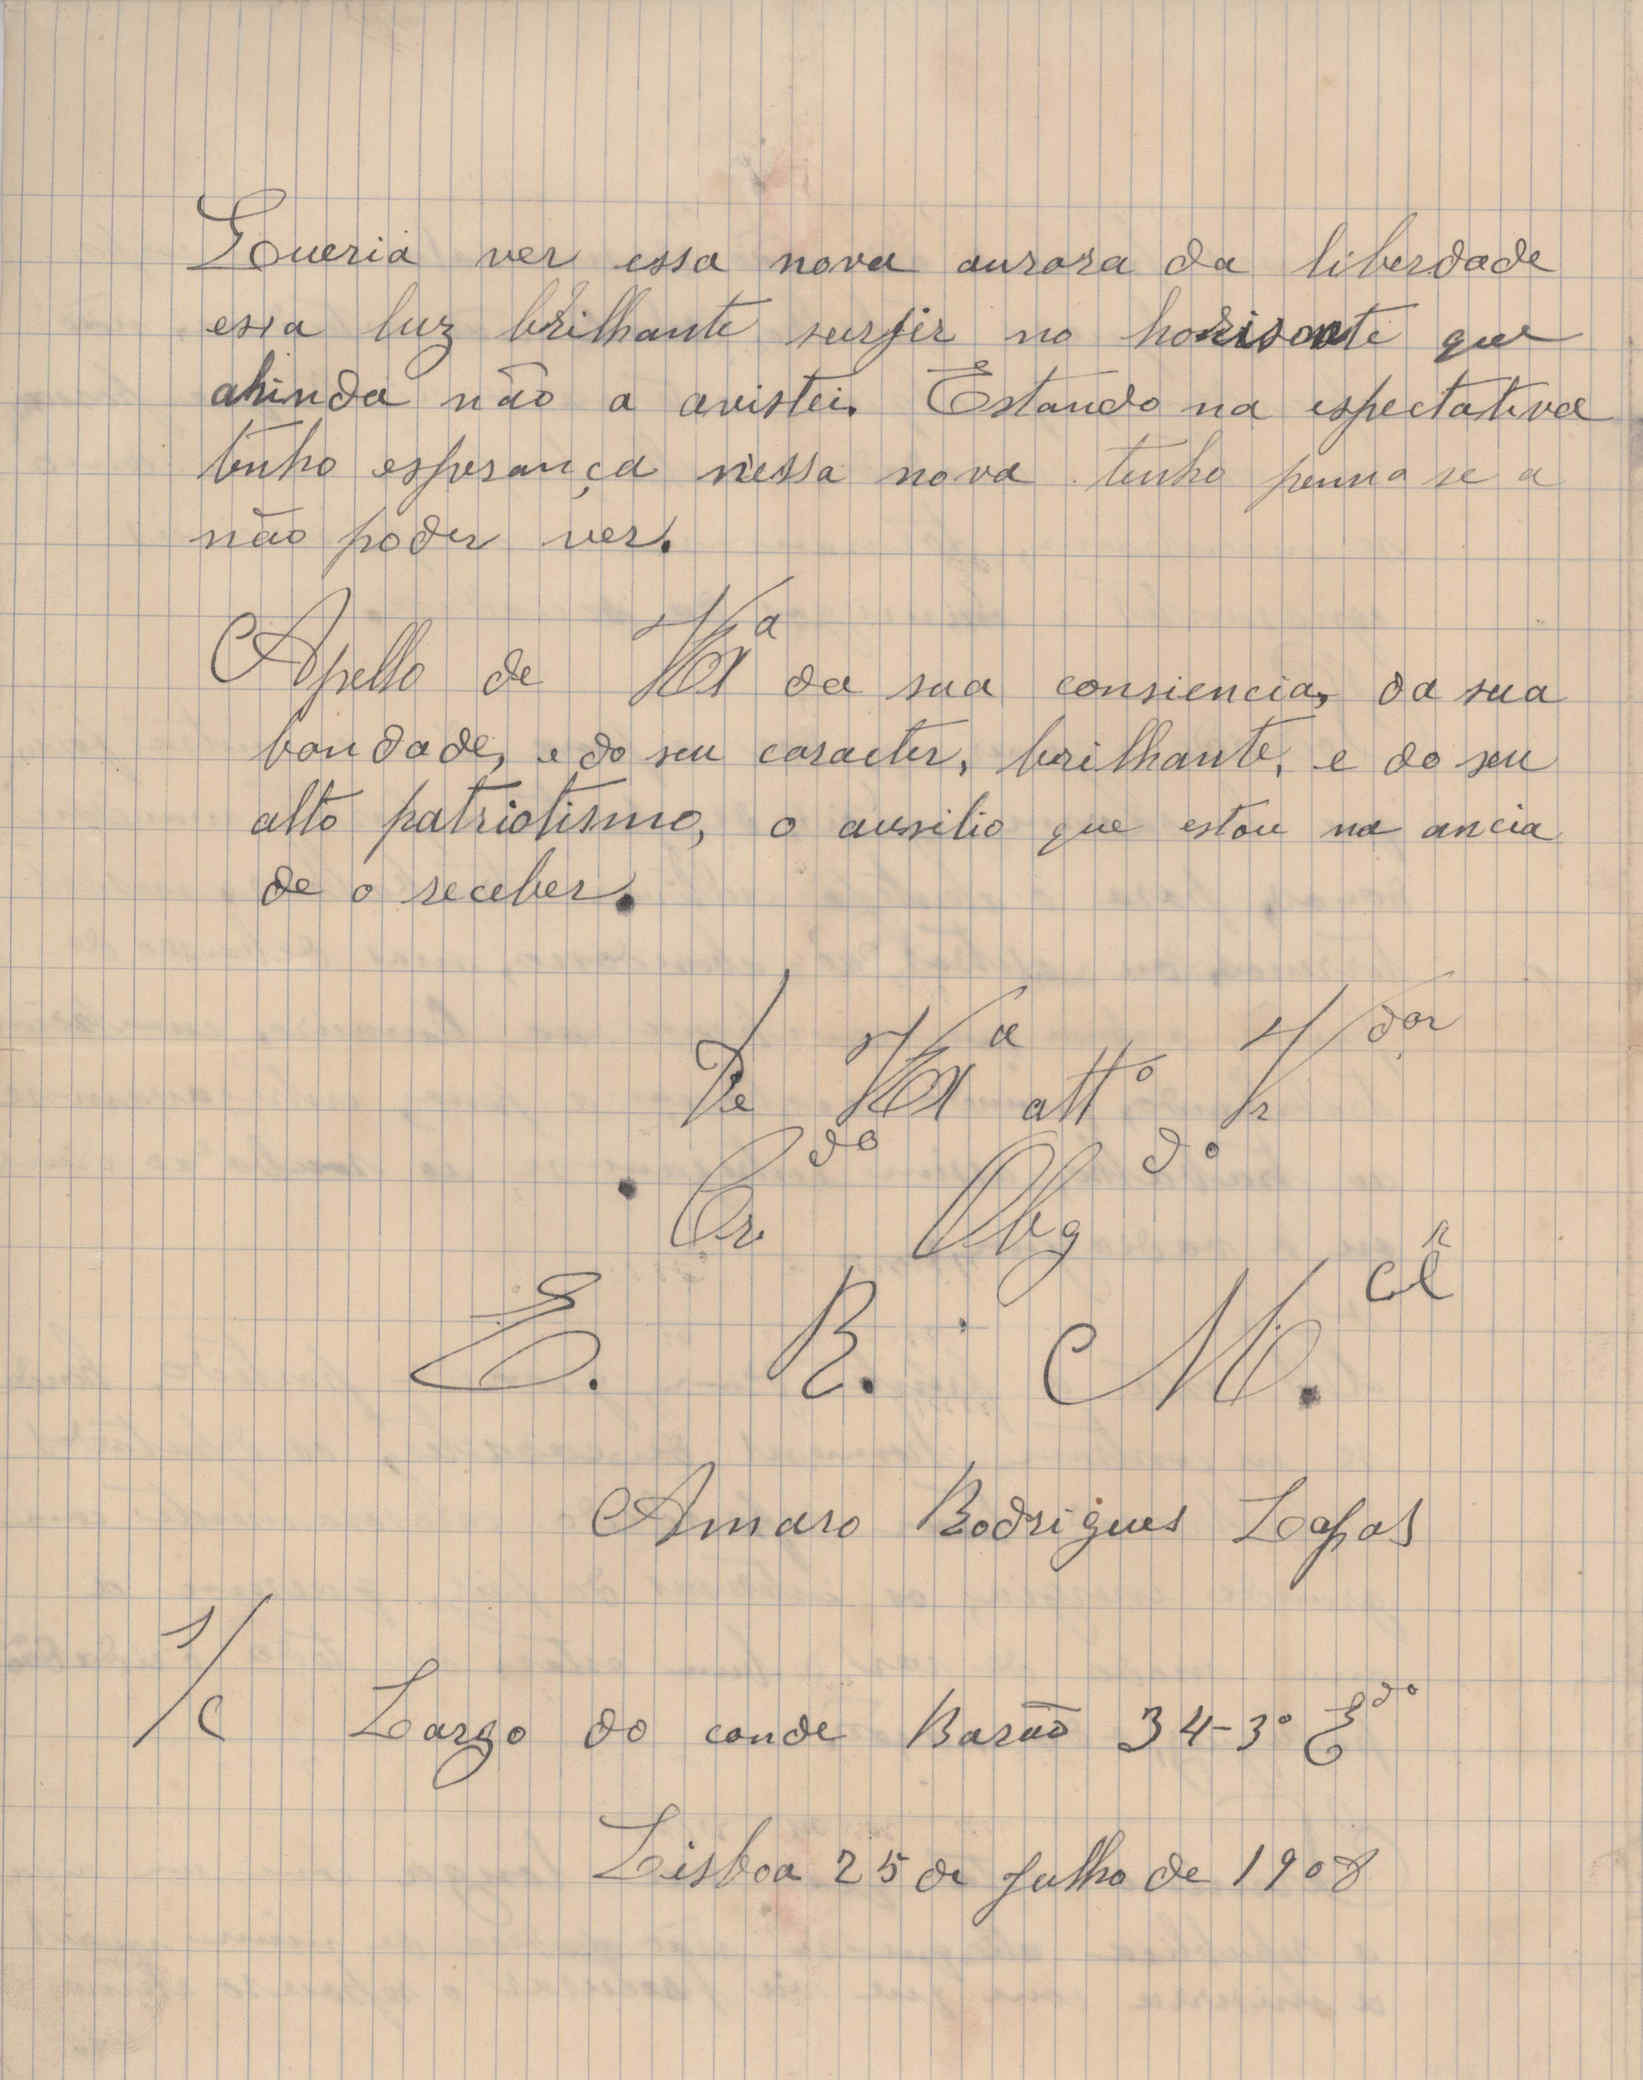 Queria ver essa nova aurora da liberdade
essa luz brilhante surjir no horisonte que
ahinda não a avistei. Estando na espectativa
tenho esperança nessa nova tenho penna se a
não poder ver.
Apello de V Exª da sua consiencia, da sua
bondade, e do seu caracter, brilhante, e do seu
alto patriotismo, o ausilio que estou na ancia
de o receber.
De V Exª attº Vrdor
Crdo Obgdo
E. R. M.cê
Amaro Rodrigues Lapas
S/C Largo do conde Barão 34-3º Edo
Lisboa 25 de Julho de 1908